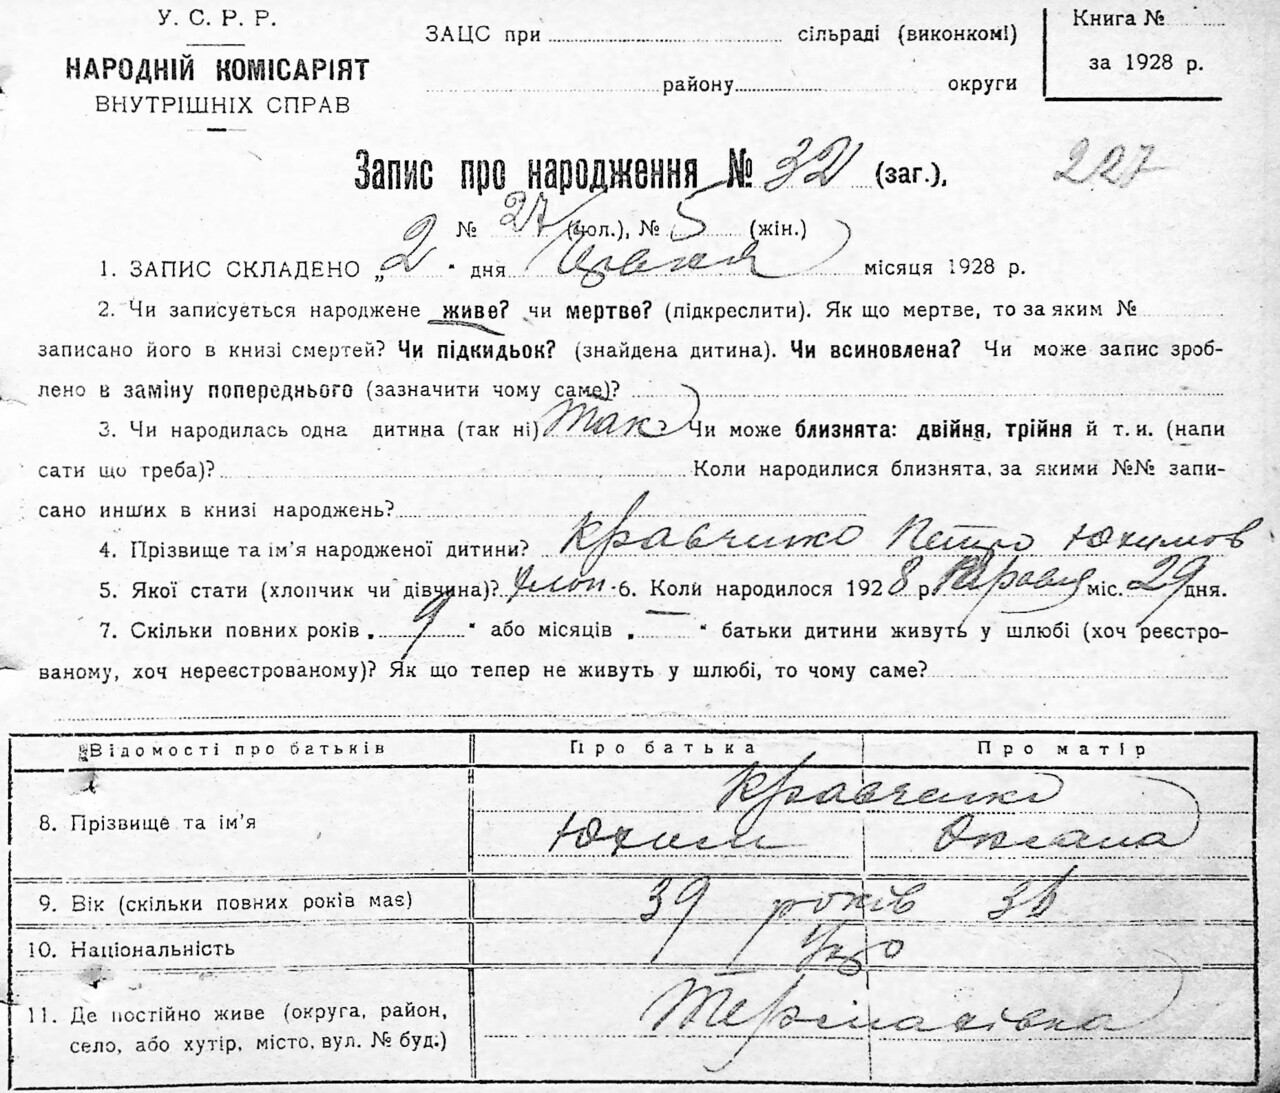 У. С. Р. Р.
НАРОДНІЙ КОМІСАРІЯТ
ВНУТРІШНІХ СПРАВ
ЗАЦС при сільраді (виконкомі)
району округи
Книга №
за 1928 р.
Запис про народження № 32 (заг.),
227
№ 27 (чол.), № 5 (жін.)
1. ЗАПИС СКЛАДЕНО „2“ дня місяця 1928 р.
2. Чи записується народжене живе? чи мертве? (підкреслити). Як що мертве, то за яким №
записано його в книзі смертей? Чи підкидьок? (знайдена дитина). Чи всиновлена? Чи може запис зроб-
лено в заміну попереднього (зазначити чому саме)?
3. Чи народилась одна дитина (так ні) Так Чи може близнята: двійня, трійня й т. и. (напи
сати що треба)? Коли народилися близнята, за якими №№ запи-
сано инших в книзі народжень?
4. Прізвище та ім’я народженої дитини? Кравченко Петро Юхимов
5. Якої стати (хлопчик чи дівчина)? Хлоп 6. Коли народилося 1928 р. міс. 29 дня.
7. Скільки повних років „9“ або місяців „ “ батьки дитини живуть у шлюбі (хоч реєстро-
ваному, хоч нереєстрованому)? Як що тепер не живуть у шлюбі, то чому саме?
Відомості про батьків Про батька Про матір
Кравченко
8. Прізвище та ім’я Юхим Оксана
9. Вік (скільки повних років має) 39 років 36
10. Національність Укр
11. Де постійно живе (округа, район,
село, або хутір, місто, вул. № буд.)